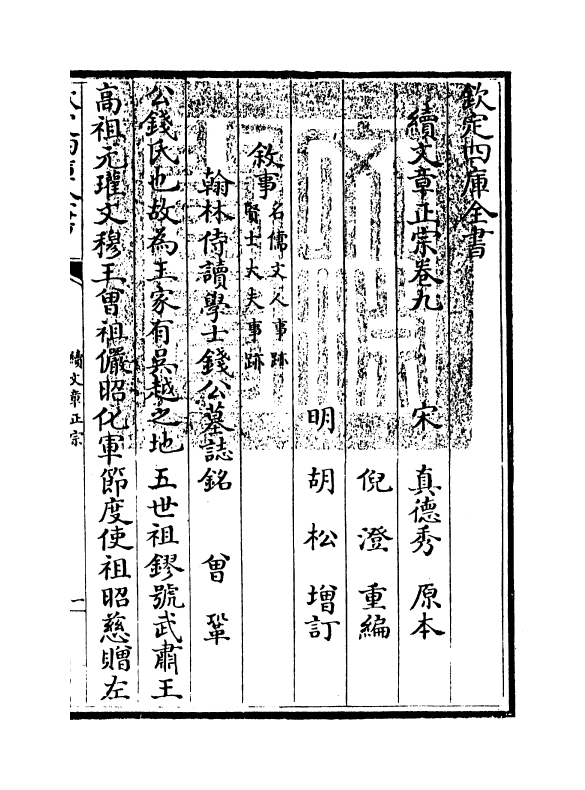 欽定四庫全書
續文章正宗卷九
宋　真德秀　原本
倪澄重編
明　胡松　增訂
敘事
名儒文人事跡
賢士大夫事跡
翰林侍讀學士錢公墓誌銘　曾鞏
公錢氏也故為王家有吳越之地五世祖鏐號武肅王
高祖元瓘文穆王曾祖儼昭化軍節度使祖昭慈贈左
續文章正宗
一